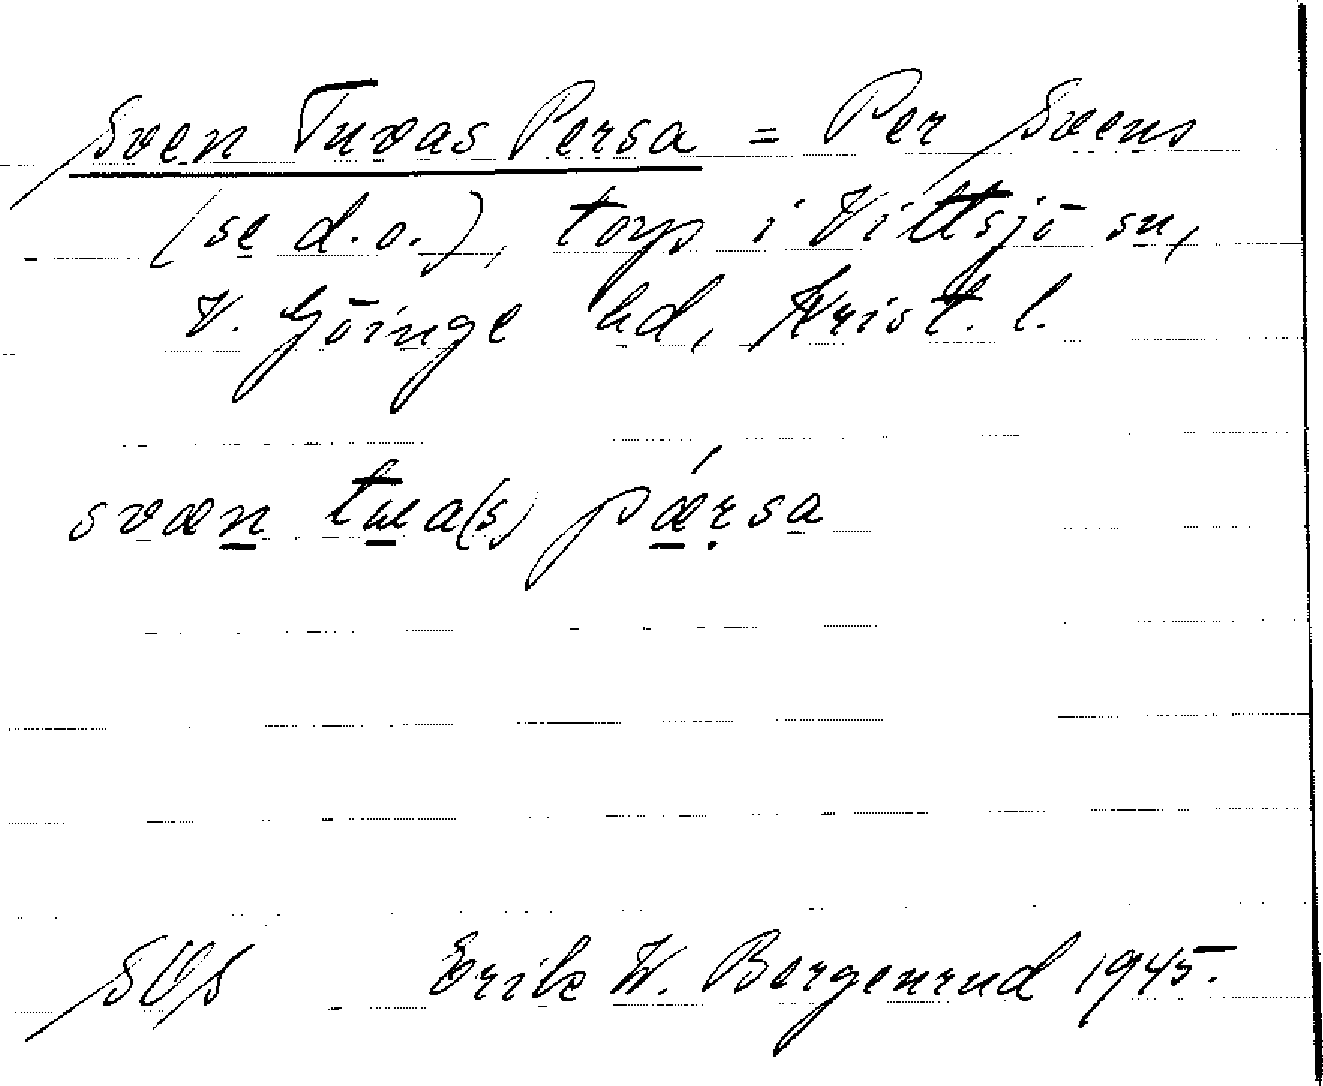 Sven Tuvas Persa = Per Svens
(se d.o.), torp i Vittsjö sn,
V. Göinge hd, Krist. l.
svæn tua(s) pǽrsa
SOS Erik W. Bergenrud 1945.